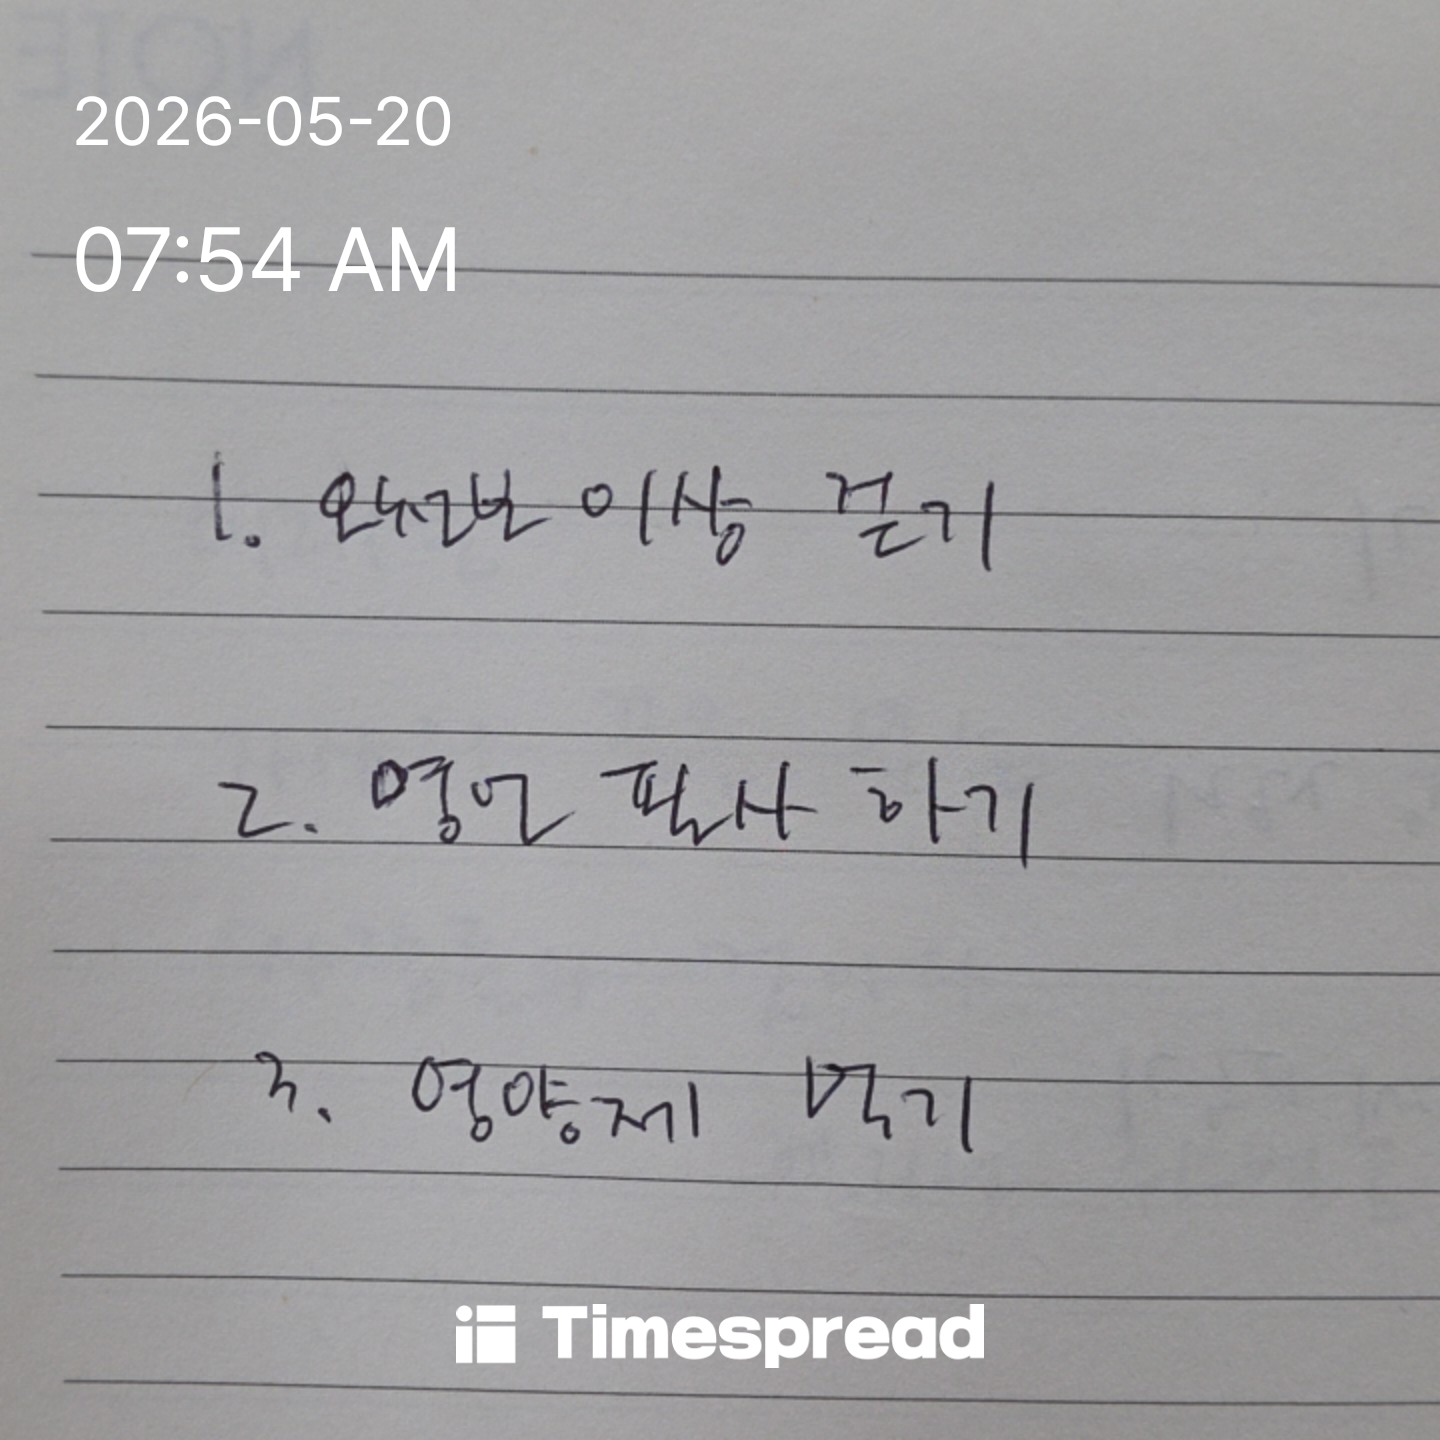 2026-05-20
07:54 AM
1. 오천보 이상 걷기
2. 영어 필사 하기
3. 영양제 먹기
Timespread